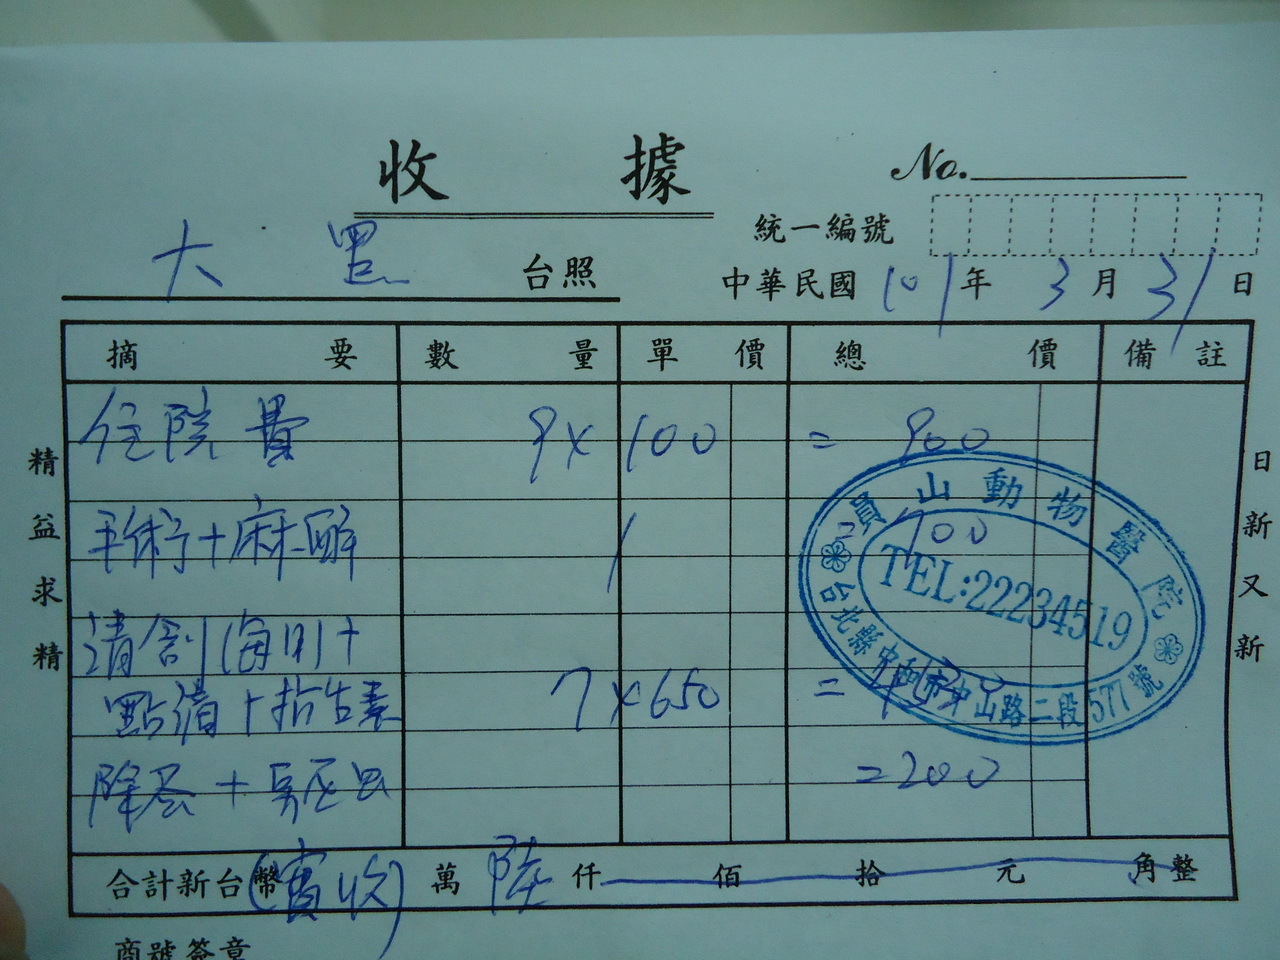 收據
No.
統一編號
大 罠 台照
中華民國 101 年 3 月 31 日
摘要 數量 單價 總價 備註
住院費 9 x 100 = 900
手術+麻醉 1 = 700
清創(每日)+
點滴+抗生素 7 x 650 =
除蚤+驅蟲 = 200
合計新台幣(實收) 萬 陸 仟 佰 拾 元 角整
商號簽章
精益求精
日新又新
員山動物醫院
TEL:22234519
台北縣中和市中山路二段577號